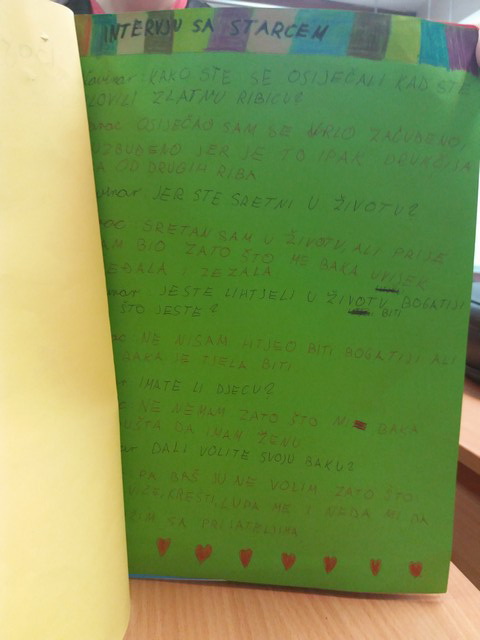 INTERVJU SA STARCEM
KAKO STE SE OSIJEČALI KAD STE
LOVILI ZLATNU RIBICU?
OSIJEČAO SAM SE VRLO ZAČUĐENO,
UZBUĐENO JER JE TO IPAK DRUKČIJA
OD DRUGIH RIBA
JER STE SRETNI U ŽIVOTU?
SRETAN SAM U ŽIVOTU, ALI PRIJE
BIO ZATO ŠTO ME BAKA UVIJEK
I ZEZALA.
JESTE LI HTJELI U ŽIVOTU BOGATIJI
ŠTO JESTE? BITI
NE NISAM HTJEO BITI BOGATIJI ALI
BAKA JE TJELA BITI
IMATE LI DJECU?
NE NEMAM ZATO ŠTO BAKA
DA IMAM ŽENU
DALI VOLITE SVOJU BAKU?
PA BAŠ JU NE VOLIM ZATO ŠTO
LUPA ME I NEDA MI DA
SA PRIJATELJIMA